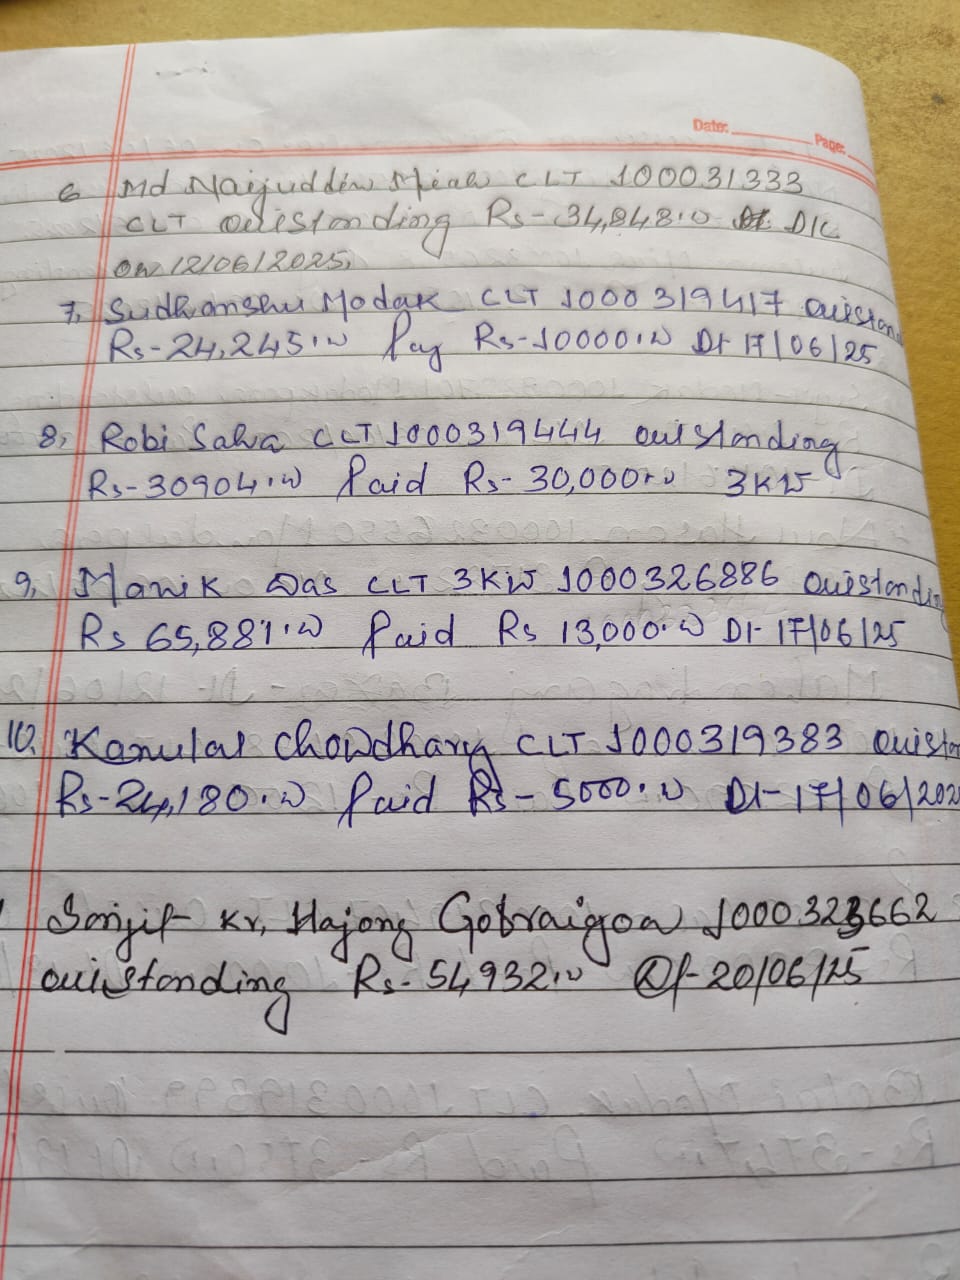 Date: Page:
6 Md Naijuddin Miah CLT 100031333
CLT outstanding Rs-34,848.00 D/C
on 12/06/2025,
7, Sudhanshu Modak CLT 1000319417 outstan
Rs-24,245.00 Pay Rs-10000.00 Dt-17/06/25
8, Robi Saha CLT 1000319444 outstanding
Rs-30904.00 Paid Rs-30,000.00 3KW
9, Manik Das CLT 3KW 1000326886 outstanding
Rs 65,881.00 Paid Rs 13,000.00 Dt-17/06/25
10. Kanulal Chowdhary CLT 1000319383 outstan
Rs-24,180.00 Paid Rs-5000.00 Dt-17/06/202
Sanjit Kr, Hajong Gobraigoa 1000323662
outstanding Rs-54932.00 Dt-20/06/25